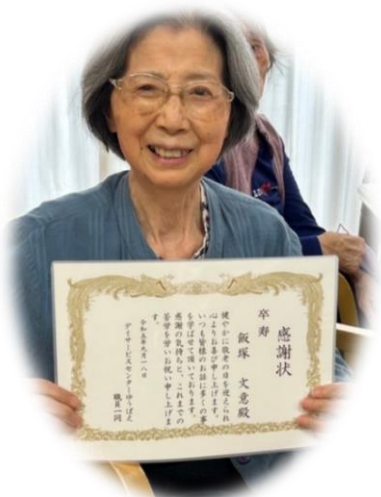 感謝状
卒寿
飯塚 文意殿
健やかに敬老の日を迎えられ
心よりお喜び申し上げます。
いつも皆様のお話に多くの事
を学ばせて頂いております。
感謝の気持ちと、これまでの
苦労を労いお祝い申し上げま
す。
令和五年九月一八日
デイサービスセンターゆうばえ
職員一同